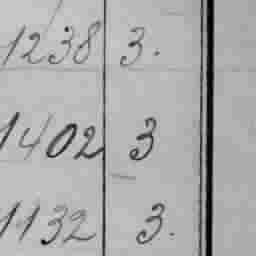 1238 3.
1402 3
1132 3.